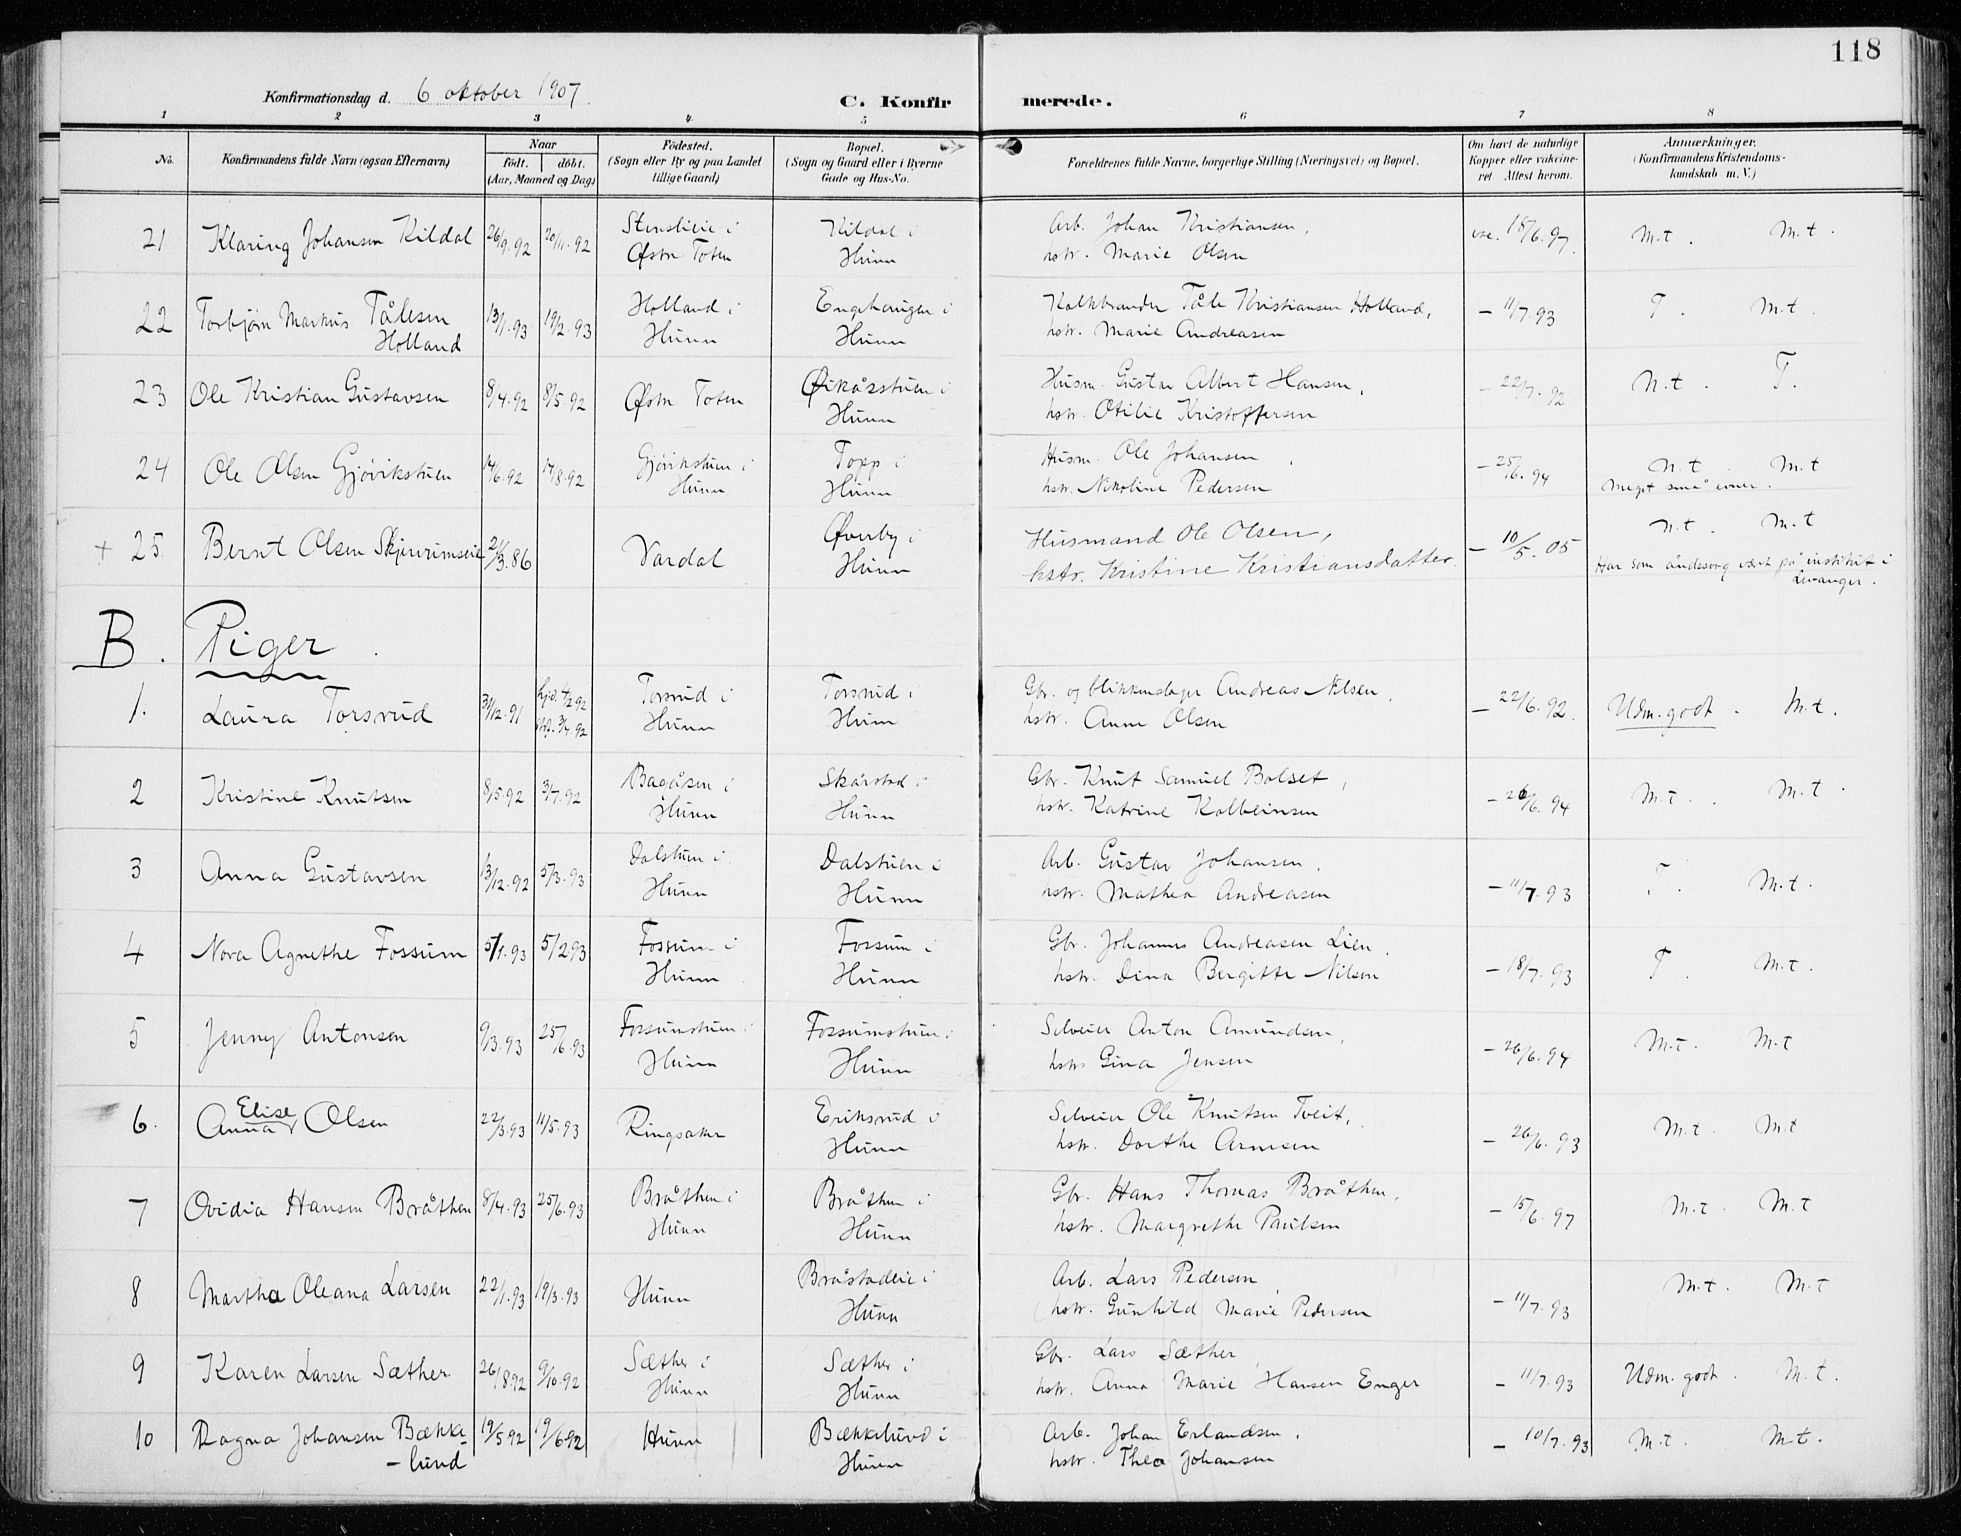 118
Konfirmationsdag d. 6 oktober 1907.
C. Konfirmerede.
1 2 3 4 5 6 7 8
No.
Konfirmandens fulde Navn (ogsaa Efternavn)
Naar
født. døbt.
(Aar, Maaned og Dag)
Fødested.
(Sogn eller By og paa Landet
tillige Gaard)
Bopæl.
(Sogn og Gaard eller i Byerne
Gade og Hus-No.
Forældrenes fulde Navne, borgerlige Stilling (Næringsvei) og Bopæl.
Om havt de naturlige
Kopper eller vakcine-
ret. Attest herom.
Anmærkninger.
(Konfirmandens Kristendoms-
kundskab m. V.)
21 Klaring Johansen Kildal 26/9.92 20/11.92 Østre Toten Kildal i Hunn
Arb. Johan Kristiansen,
hstr. Marie Olsen
15/6.97. M.t. M.t.
22 Torbjørn Markus Tålesen Holland 13/1.93 19/2.93 Holland i Hunn Enghaugen i Hunn
Kalkbrænder Tåle Kristiansen Holland,
hstr. Marie Andreasen
— 11/7.93 T. M.t.
23 Ole Kristian Gustavsen 8/4.92 8/5.92 Østre Toten Øikåsstuen i Hunn
Husm. Gustav Albert Hansen,
hstr. Otilie Kristoffersen
— 22/7.92 N.t. T.
24 Ole Olsen Gjøvikstuen 14/6.92 14/8.92 Gjøvikstuen i Hunn Topp i Hunn
Husm. Ole Johansen,
hstr. Nikoline Pedersen
— 25/6.94 N.t. M.t
Meget små evner.
+ 25 Bernt Olsen 21/3.86 Vardal Øverby i Hunn
Husmand Ole Olsen,
hstr. Kristine Kristiansdatter.
— 10/5.05 N.t. M.t
Har som åndssvag været på institut i
Levanger.
B. Piger.
1. Laura Torsrud 31/12.91 hjd. 4/2 92 3/4.92 Torsrud i Hunn Torsrud i Hunn
Gbr. og blikkenslager Andreas Nilsen,
hstr. Anne Olsen
— 22/6.92. Udm. godt. M.t.
2 Kristine Knutsen 8/5.92 3/7.92 Bagåsen i Hunn Skårstad i Hunn
Gbr. Knut Samuel Bolset,
hstr. Katrine Kolbeinsen
— 26/6.94 M.t. M.t.
3 Anna Gustavsen 13/12.92 5/3.93 Dalstuen i Hunn Dalstuen i Hunn
Arb. Gustav Johansen,
hstr. Mathea Andreasen
— 11/7.93 T. M.t.
4 Nora Agnethe Fossum 5/1.93 5/2 93 Fossum i Hunn Fossum i Hunn
Gbr. Johannes Andreasen Lien,
hstr. Dina Bergitte Nilsen
— 18/7.93 T. M.t.
5 Jenny Antonsen 9/3.93 25/6.93 Fossumstuen i Hunn Fossumstuen i Hunn
Selveier Anton Amundsen,
hstr Gina Jensen
— 26/6.94 M.t. M.t
6. Anna Elise Olsen 22/3.93 11/5.93 Ringsaker Eriksrud i Hunn
Selveier Ole Knutsen Tveit,
hstr. Dorthe Arnesen
— 26/6.93 M.t. M.t
7 Ovidia Hansen Bråthen 8/4.93 25/6.93 Bråthen i Hunn Bråthen i Hunn
Gbr. Hans Thomas Bråthen,
hstr. Margrethe Paulsen
— 15/6.97 M.t. M.t
8 Martha Oleana Larsen 22/1.93 19/3.93 Hunn Bråstadeie i Hunn
Arb. Lars Pedersen,
hstr. Gunhild Marie Pedersen
— 11/7.93 M.t. M.t
9 Karen Larsen Sæther 26/8.92 9/10.92 Sæther i Hunn Sæther i Hunn
Gbr. Lars Sæther,
hstr. Anna Marie Hansen Enger
— 11/7.93 Udm. godt. M.t.
10 Ragna Johansen Bække-lund 19/5 92 19/6 92 Hunn Bækkelund i Hunn
Arb. Johan Erlandsen,
hstr. Thea Johansen
— 10/7.93 M.t. M.t.